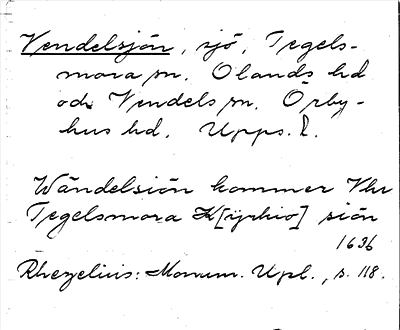 Vendelsjön, sjö, Tegels-
mora sn. Olands hd
och Vendels sn. Örby-
hus hd. Upps. l.
Wändelsiön kommer Vhr
Tegelsmora K[yrkio] siön
1636
Rhezelius: Monum. Upl., s. 118.